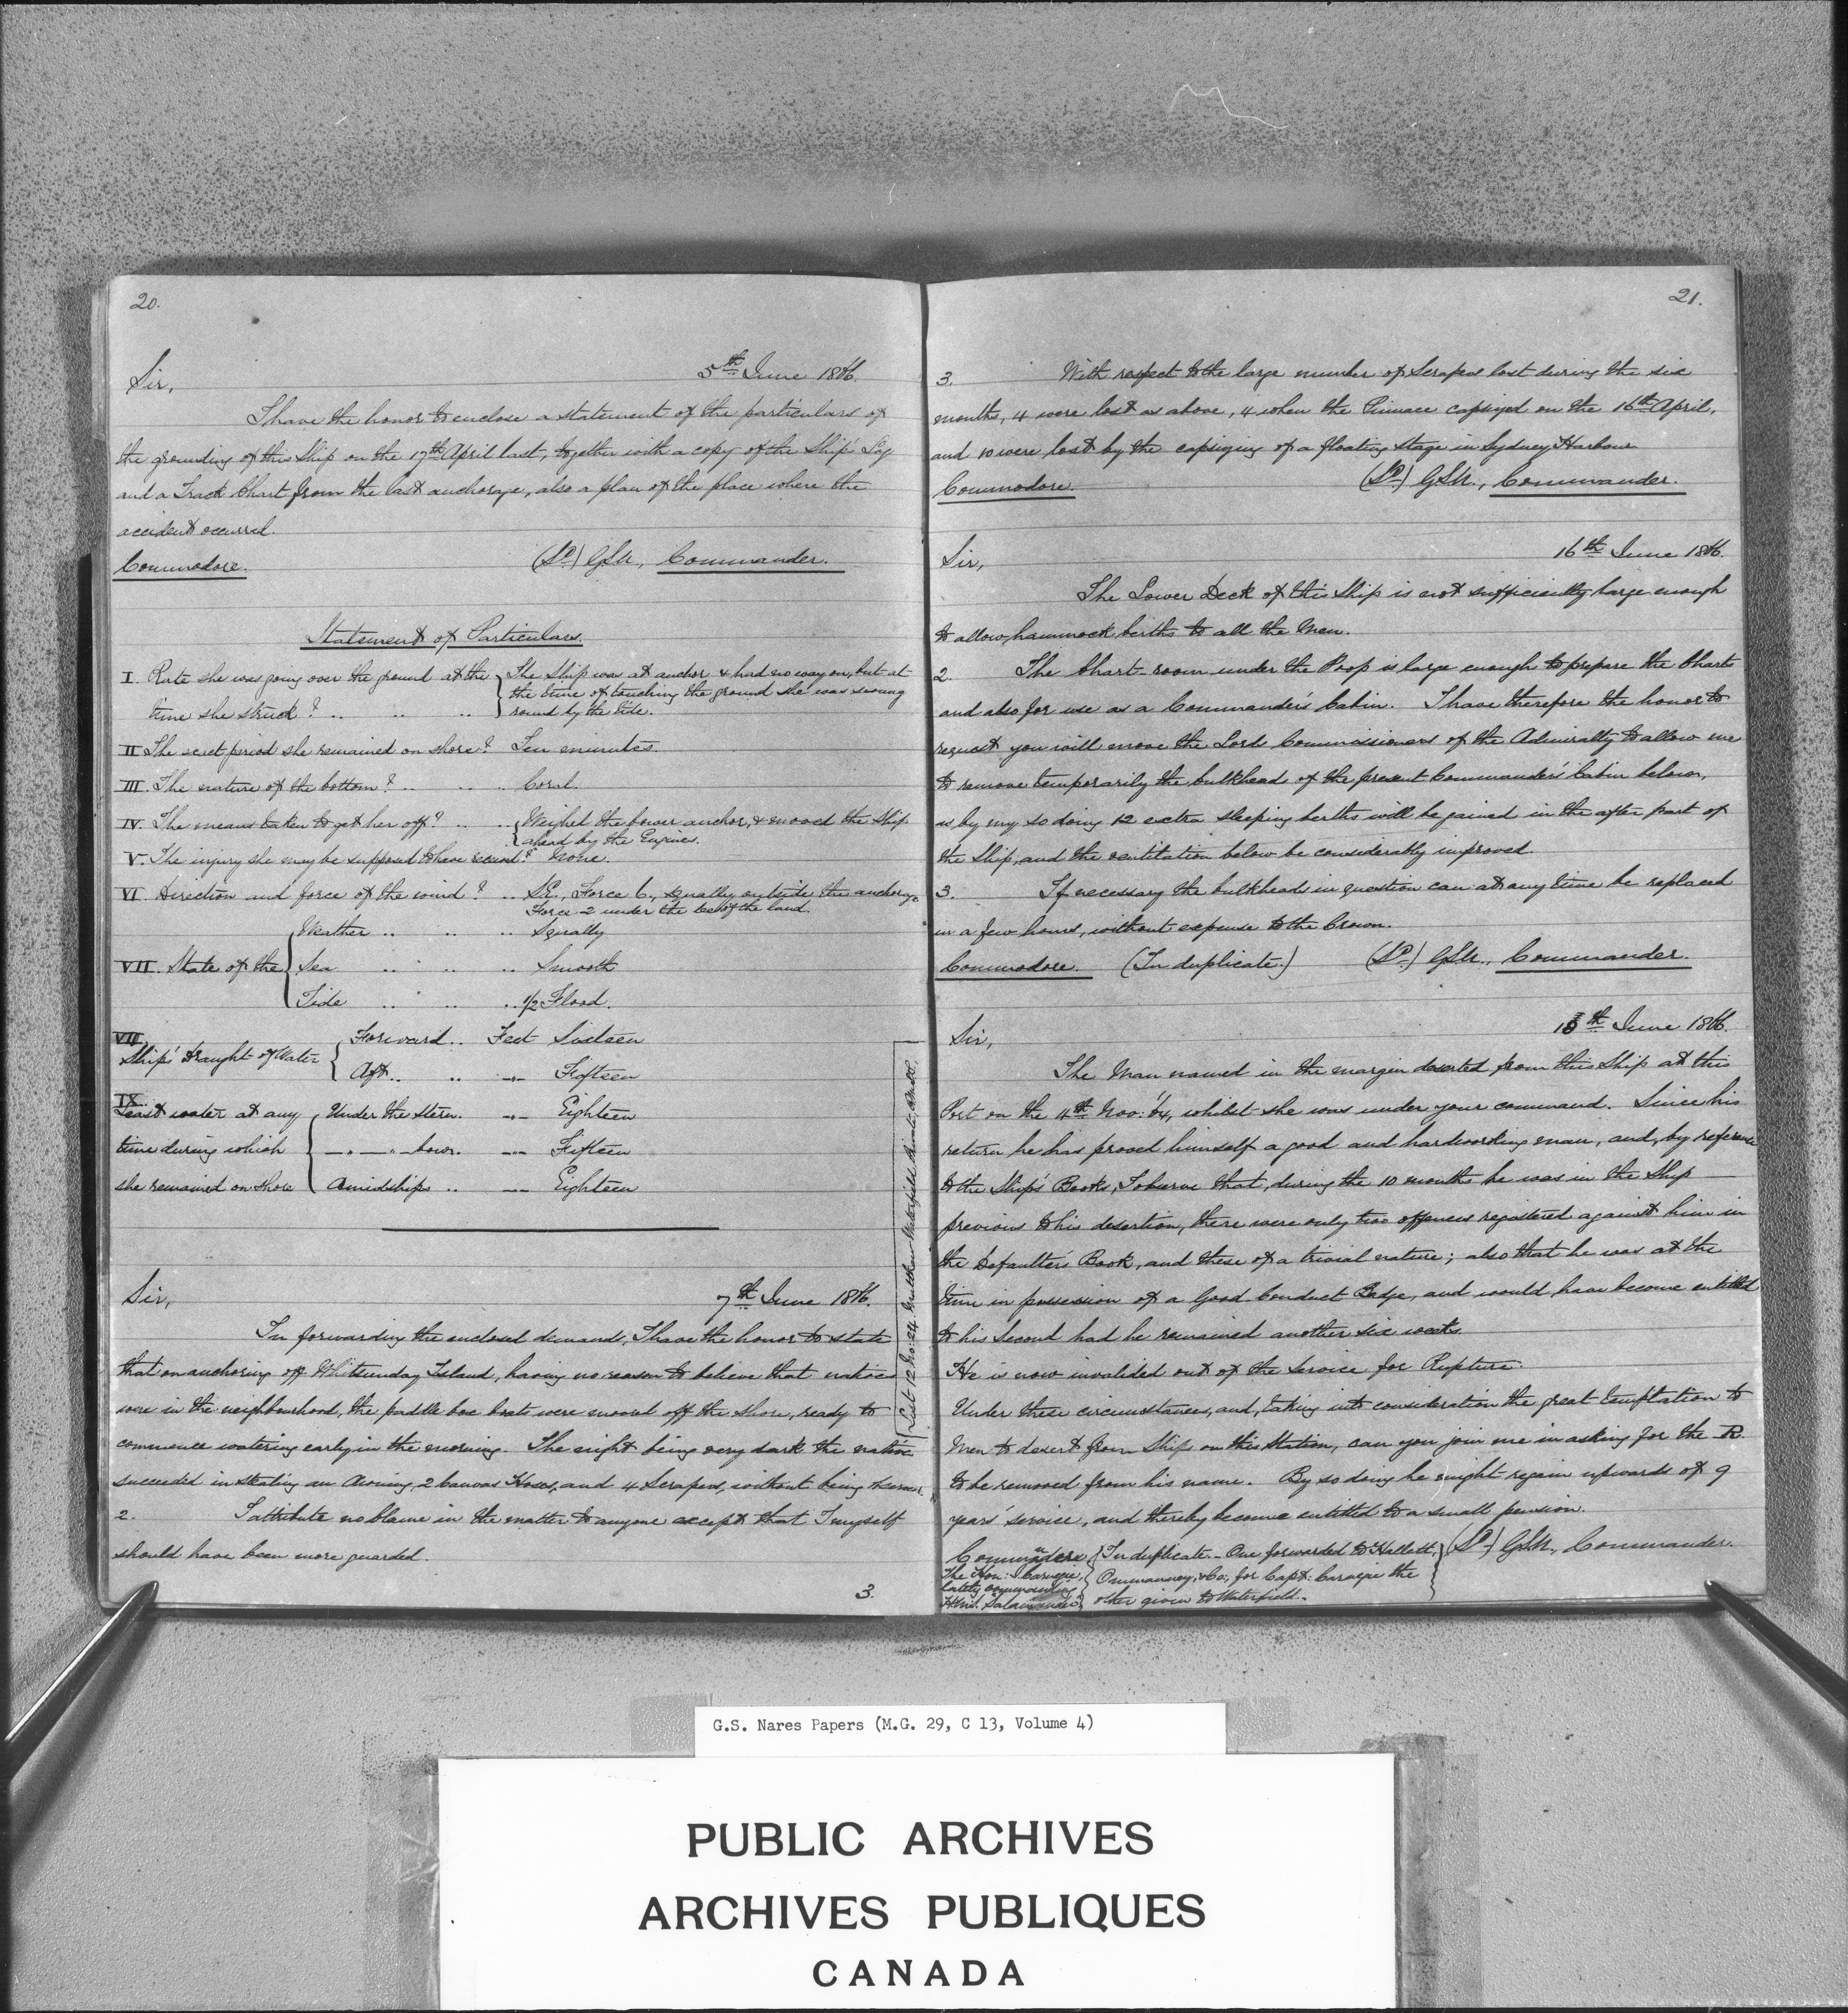 20.
Sir,
5th June 1866.
I have the honor to enclose a statement of the particulars of
the grounding of this Ship on the 17th April last, together with a copy of the Ship's Log
and a Track Chart from the last anchorage, also a plan of the place where the
accident occurred.
Commodore. (Sd.) GSN., Commander.
Statement of Particulars.
I. Rate she was going over the ground at the time she struck? .. .. ..
The Ship was at anchor & had no way on, but at
the time of touching the ground she was swung
round by the tide.
II The exact period she remained on shore? Ten minutes.
III. The nature of the bottom? .. .. .. Coral.
IV. The means taken to get her off? .. .. Weighed the bower anchor, & moved the Ship
ahead by the Engines.
V. The injury she may be supposed to have received? None.
VI. Direction and force of the wind? .. S.E., Force 6, squally outside the anchorage
Force 2 under the lee of the land.
VII. State of the
Weather .. .. .. Squally
Sea .. .. .. Smooth
Tide .. .. .. 1/2 Flood.
VIII.
Ship's draught of Water
Forward .. Feet Sixteen
Aft .. .. —"— Fifteen
IX.
Least water at any
time during which
she remained on shore
Under the Stern. —"— Eighteen
—"— —"— bow. —"— Fifteen
Amidships .. —"— Eighteen
Sir,
7th June 1866.
In forwarding the enclosed demand, I have the honor to state
that on anchoring off Whitsunday Island, having no reason to believe that natives
were in the neighbourhood, the paddle box boats were moored off the shore, ready to
commence watering early in the morning. The night being very dark the natives
succeeded in stealing an Awning, 2 Canvas Hoses, and 4 Scrapers, without being seen.
2. I attribute no blame in the matter to anyone except that I myself
should have been more guarded.
3.
21.
3. With respect to the large number of Scrapers lost during the six
months, 4 were lost as above, 4 when the Pinnace capsized on the 16th April,
and 10 were lost by the capsizing of a floating stage in Sydney Harbour
Commodore. (Sd.) GSN., Commander.
Sir,
16th June 1866.
The Lower Deck of this Ship is not sufficiently large enough
to allow hammock berths to all the Men.
2. The Chart-room under the Poop is large enough to prepare the Charts
and also for use as a Commander's Cabin. I have therefore the honor to
request you will move the Lords Commissioners of the Admiralty to allow me
to remove temporarily the bulkhead of the present Commander's Cabin below,
as, by my so doing 12 extra sleeping berths will be gained in the after part of
the Ship, and the ventilation below be considerably improved.
3. If necessary the bulkheads in question can at any time be replaced
in a few hours, without expense to the Crown.
Commodore. (In duplicate.) (Sd.) GSN., Commander.
Sir,
15th June 1866.
List 12 No: 24. Matthew Waterfield
The Man named in the margin deserted from this Ship at this
Port on the 4th Nov: '64, whilst she was under your command. Since his
return he has proved himself a good and hardworking man, and, by reference
to the Ship's Books, I observe that, during the 10 months he was in the Ship
previous to his desertion, there were only two offences registered against him in
the Defaulter's Book, and these of a trivial nature; also that he was at the
time in possession of a Good Conduct Badge, and would have become entitled
to his Second had he remained another six weeks.
He is now invalided out of the Service for Rupture.
Under these circumstances, and, taking into consideration the great temptation to
Men to desert from Ships on this Station, can you join me in asking for the R.
to be removed from his name. By so doing he might regain upwards of 9
years' service, and thereby become entitled to a small pension.
Commander
The Hon: Carnegie,
lately commanding
H.M.S. Salamander
In duplicate. - One forwarded to Hallett,
Ommanney, & Co:, for Capt: Carnegie the
other given to Waterfield.
(Sd.) GSN., Commander.
G.S. Nares Papers (M.G. 29, C 13, Volume 4)
PUBLIC ARCHIVES
ARCHIVES PUBLIQUES
CANADA